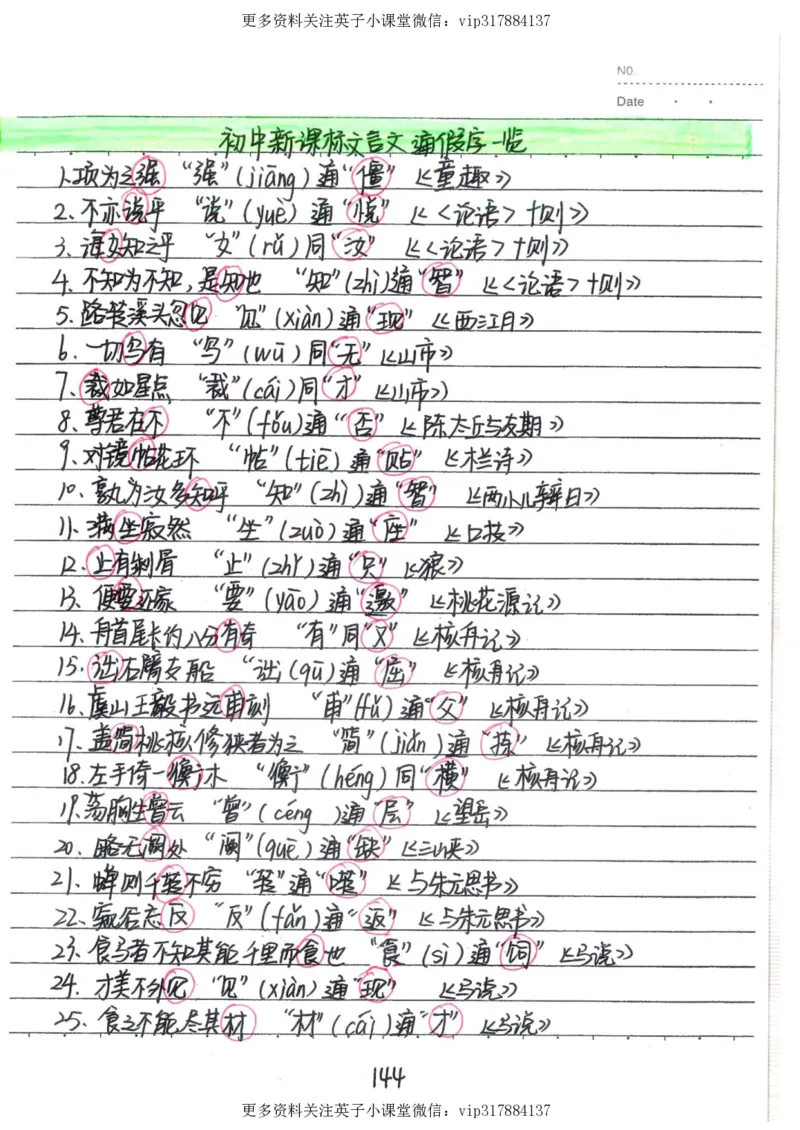 更多资料关注英子小课堂微信：vip317884137
NO.
Date
初中新课标文言文通假字一览
1、项为之强 “强”(jiāng)通“僵”《童趣》
2、不亦说乎 “说”(yuè)通“悦”《<论语>十则》
3、诲女知之乎 “女”(rǔ)同“汝”《<论语>十则》
4、不知为不知，是知也 “知”(zhì)通“智”《<论语>十则》
5、路转溪头忽见 “见”(xiàn)通“现”《西江月》
6、一切乌有 “乌”(wū)同“无”《山市》
7、裁如星点 “裁”(cái)同“才”《山市》
8、尊君在不 “不”(fǒu)通“否”《陈太丘与友期》
9、对镜帖花环 “帖”(tiē)通“贴”《木兰诗》
10、孰为汝多知乎 “知”(zhì)通“智”《两小儿辩日》
11、满坐寂然 “坐”(zuò)通“座”《口技》
12、止有剩屑 “止”(zhǐ)通“只”《狼》
13、便要还家 “要”(yāo)通“邀”《桃花源记》
14、舟首尾长约八分有奇 “有”同“又”《核舟记》
15、诎右臂支船 “诎”(qū)通“屈”《核舟记》
16、虞山王毅书远甫刻 “甫”(fǔ)通“父”《核舟记》
17、盖简桃核修狭者为之 “简”(jiǎn)通“拣”《核舟记》
18、左手倚一衡木 “衡”(héng)同“横”《核舟记》
19、荡胸生曾云 “曾”(céng)通“层”《望岳》
20、略无阙处 “阙”(quē)通“缺”《三峡》
21、蝉则千转不穷 “转”通“啭”《与朱元思书》
22、窥谷忘反 “反”(fǎn)通“返”《与朱元思书》
23、食马者不知其能千里而食也 “食”(sì)通“饲”《马说》
24、才美不外见 “见”(xiàn)通“现”《马说》
25、食之不能尽其材 “材”(cái)通“才”《马说》
144
更多资料关注英子小课堂微信：vip317884137